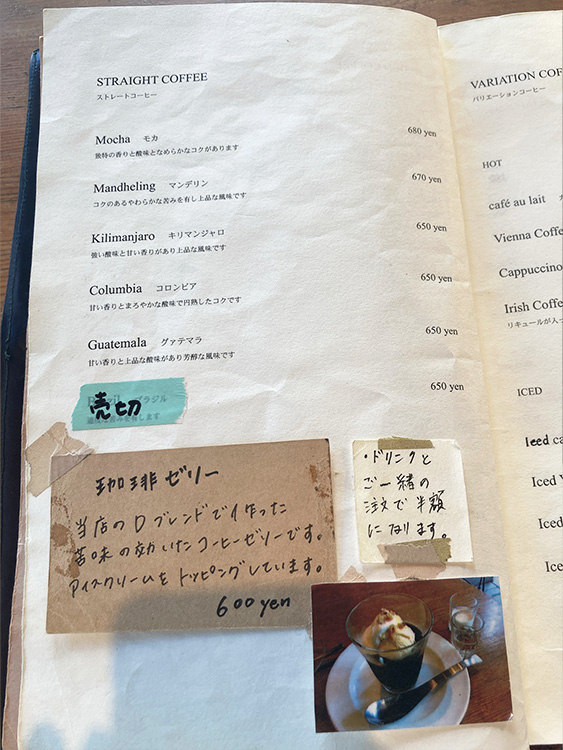 STRAIGHT COFFEE
ストレートコーヒー
Mocha モカ 680 yen
独特の香りと酸味となめらかなコクがあります
Mandheling マンデリン 670 yen
コクのあるやわらかな苦みを有し上品な風味です
Kilimanjaro キリマンジャロ 650 yen
強い酸味と甘い香りがあり上品な風味です
Columbia コロンビア 650 yen
甘い香りとまろやかな酸味で円熟したコクです
Guatemala グァテマラ 650 yen
甘い香りと上品な酸味があり芳醇な風味です
ブラジル 650 yen
売切
珈琲ゼリー
当店のDブレンドで作った
苦味の効いたコーヒーゼリーです。
アイスクリームをトッピングしています。
600yen
・ドリンクと
ご一緒の
注文で半額
になります。
VARIATION COF
バリエーションコーヒー
HOT
café au lait
Vienna Coffe
Cappuccino
Irish Coffe
リキュールが入っ
ICED
Iced ca
Iced
Iced
Ice